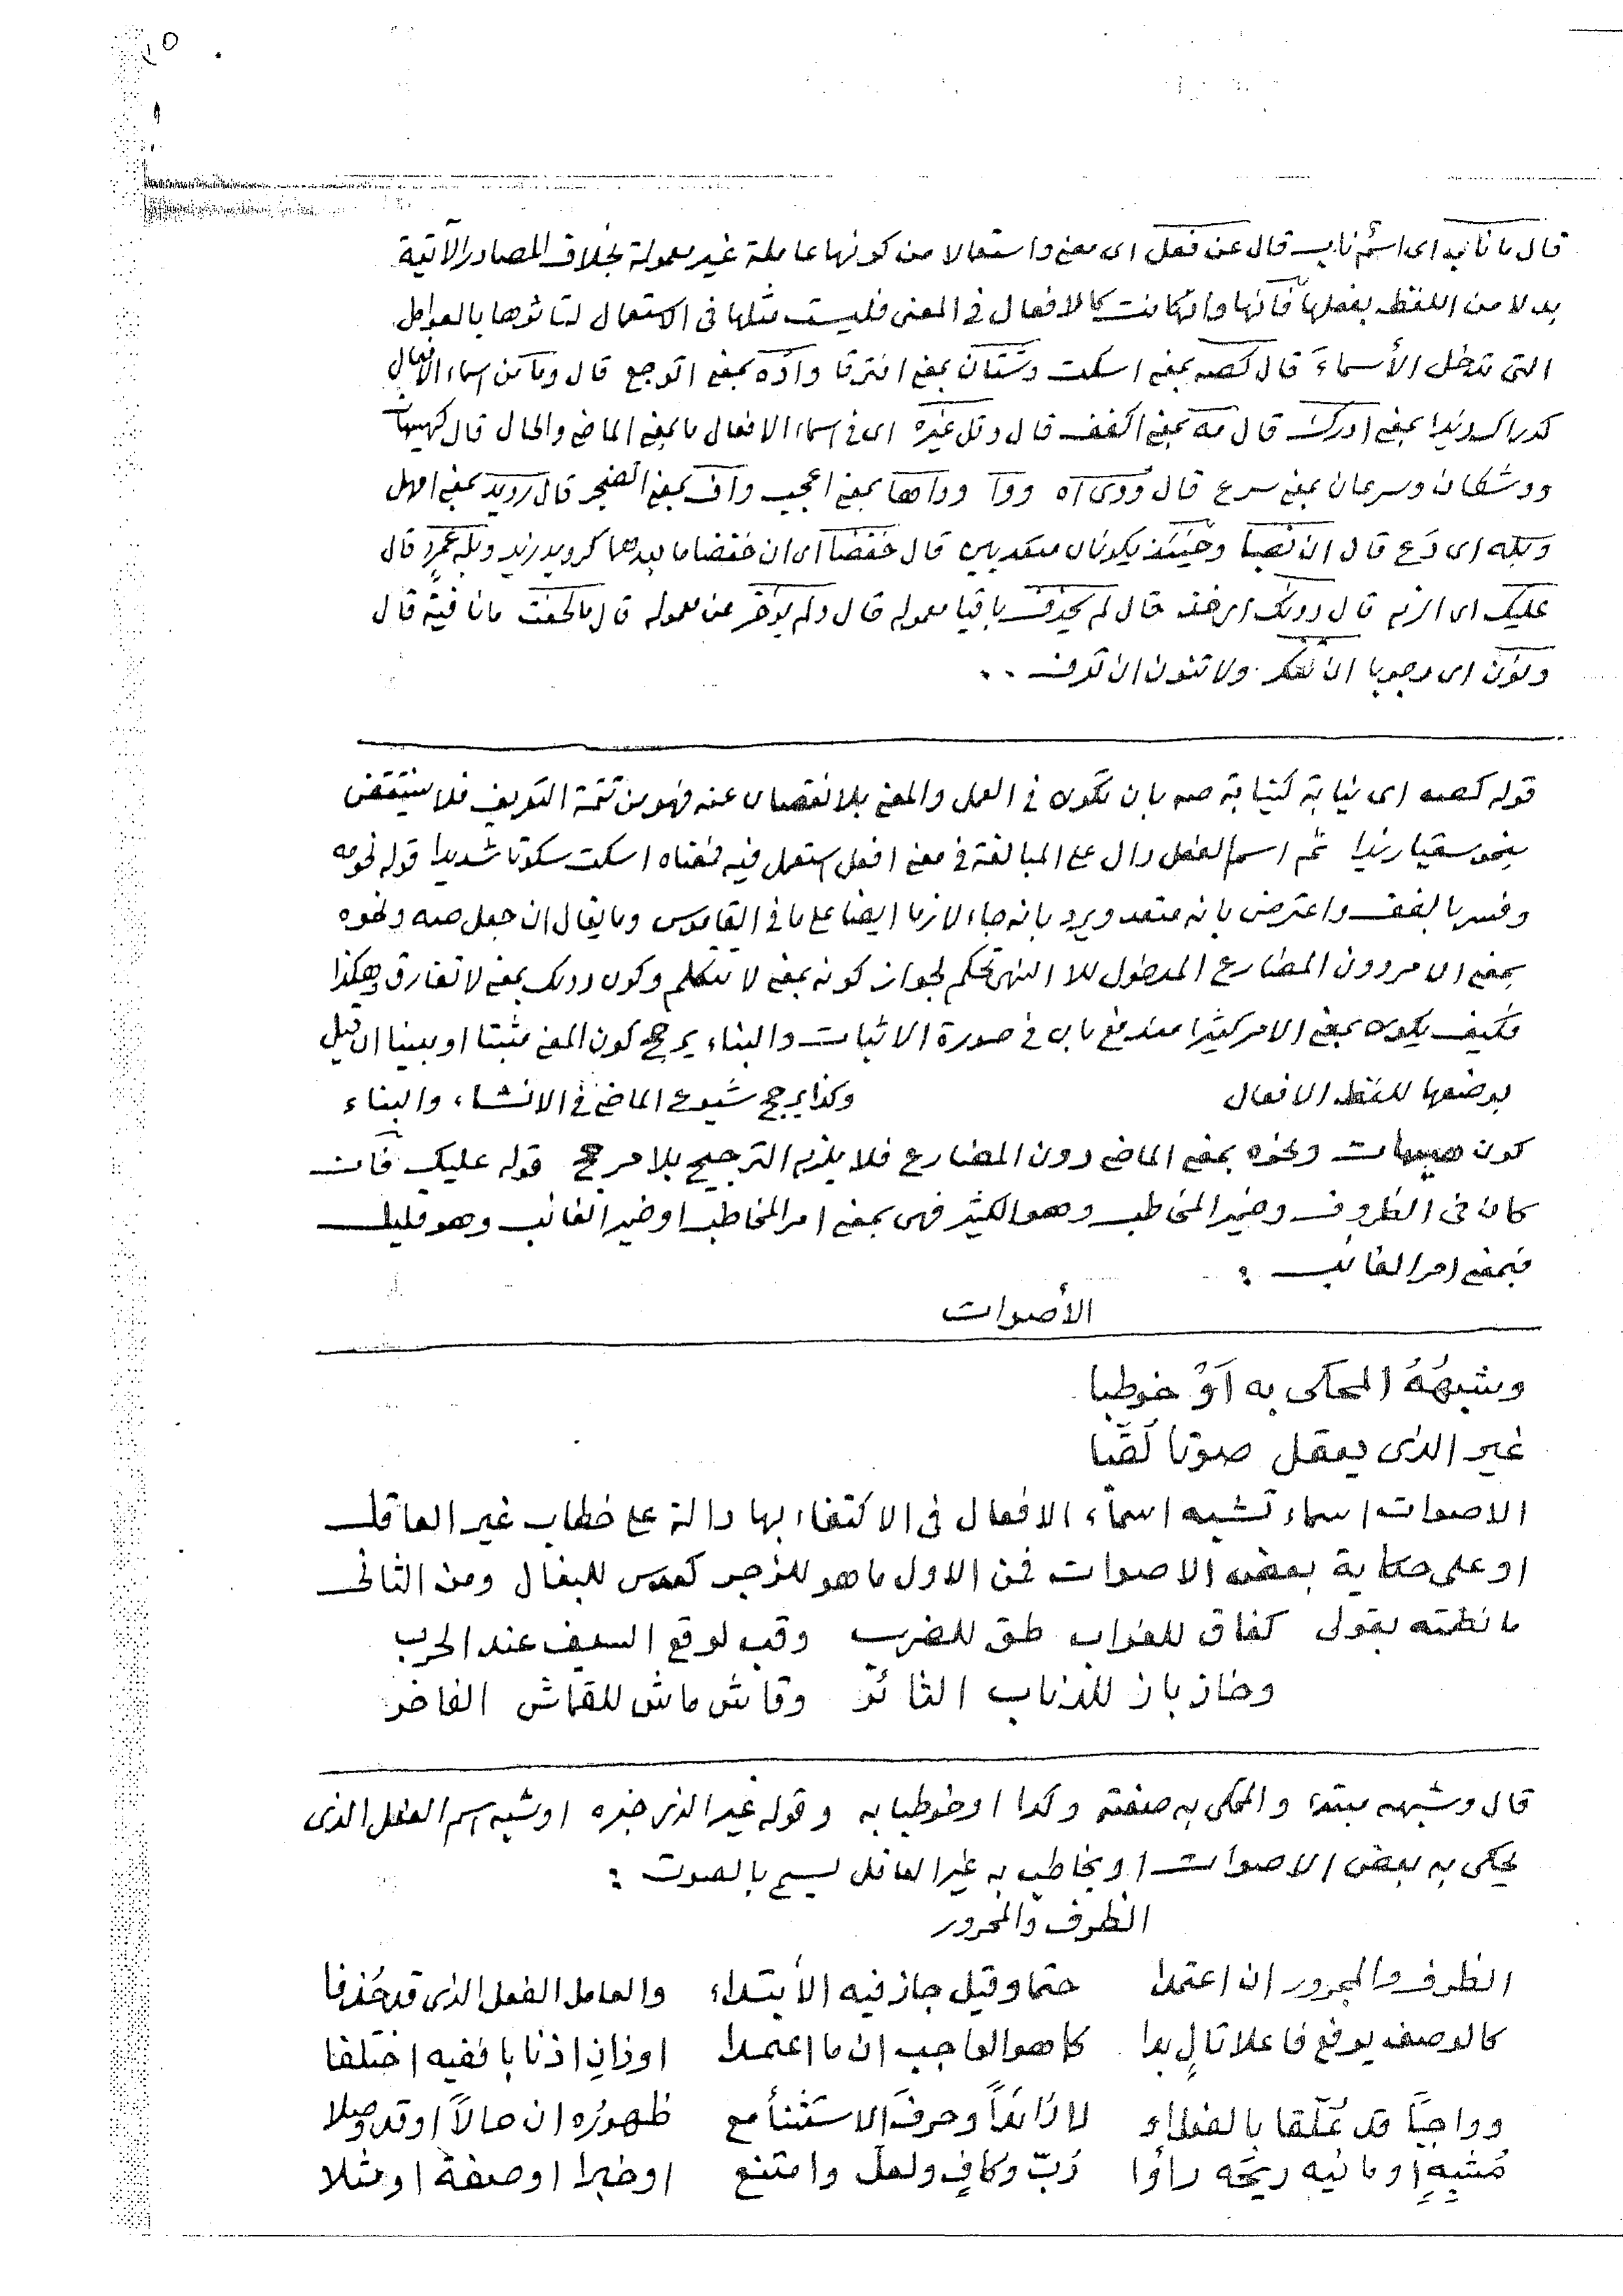 ٥
قال ما ناب اى اسمٌ ناب قال عن فعل اى معنى واستعمالا من كونها عاملة غير معمولة بخلاف المصادر الآتية
بدلا من اللفظ بفعلها فانها وان كانت كالافعال فى المعنى فليست مثلها فى الاستعمال لتأثرها بالعوامل
التى تدخل الأسماء قال كصه بمعنى اسكت وشتان بمعنى افترقا واوّه بمعنى اتوجع قال وما من اسماء الافعال
كدراك زيدا بمعنى ادرك قال مه بمعنى اكفف قال وقل غيره اى فى اسماء الافعال ما بمعنى الماضى والحال قال كهيهات
ووشكان وسرعان بمعنى سرع قال ووى اه ووا وواها بمعنى اعجب واف بمعنى اتضجر قال رويد بمعنى امهل
وبله اى دع قال ان نصبا وحينئذ يكونان متعديين قال خفضا اى ان خفضا ما بعدهما كرويد زيد وبله عمرٍو قال
عليك اى الزم قال دونك اى خذ قال لم يحذف باقيا معموله قال ولم يؤخر عن معموله قال ما لحقت ما نافية قال
ونوّن اى وجوبا ان تنكر ولا تنون ان تعرف ..
قوله كصه اى نيابة كنيابة صه بان تكون فى العمل والمعنى بلا نقصان عنه فهو من تتمة التعريف فلا ينتقض
بنحو سقيا زيدا ثم اسم الفعل دال على المبالغة فى معنى افعل استعمل فيه فمعناه اسكت سكوتا شديدا قوله نحو مه
وفسر بالفف واعترض بانه متعد ويرد بانه جاء لازما ايضا على ما فى القاموس وما يقال ان جعل صه ونحوه
بمعنى الامر دون المضارع المدخول للا النهى تحكم لجواز كونه بمعنى لا تتكلم وكون دونك بمعنى لا تفارق وهكذا
فكيف يكون بمعنى الامر كثيرا مندفع بان فى صورة الاثبات والبناء يرجح كون المعنى مثبتا او مبينا ان قيل
بوضعها للفظ الافعال وكذا يرجح شيوع الماضى فى الانشاء والبناء
كون هيهات ونحوه بمعنى الماضى دون المضارع فلا يلزم الترجيح بلا مرجح قوله عليك فان
كان فى الظروف وضمير المخاطب وهو الكثير فهى بمعنى امر المخاطب او ضمير الغائب وهو قليل
فبمعنى امر الغائب :
الأصوات
وشبهُهُ المحكى به اَوْ خوطبا
غير الذى يعقل صوتا لَقّبا
الاصوات اسماء تشبه اسماء الافعال فى الاكتفاء بها دالة على خطاب غير العاقل
او على حكاية بعض الاصوات فمن الاول ما هو للزجر كعدس للبغال ومن الثانى
ما نظمته بقولى كغاق للغراب طق للضرب وقب لوقع السيف عند الحرب
وخاز باز للذباب الثائر وقاش ماش للقماش الفاخر
قال وشبهه مبتدا والمحكى به صفته وكذا او خوطبا به وقوله غير الذى خبره او شبه اسم الفعل الذى
يحكى به بعض الاصوات او يخاطب به غير العاقل يسمى بالصوت :
الظرف والمجرور
الظرف والمجرور ان اعتمدا حتما وقيل جاز فيه الأبتداء والعامل الفعل الذى قد حُذفا
كالوصف يرفع فاعلا تالٍ بدا كما هو الواجب ان ما اعتمدا او ذانِ اذ نابا ففيه اختلفا
وواجبًا قد عُلّقا بالفعل او لا زائداً وحرفَ الاستثنأ مع ظهورُه ان حالاً او قد وصلا
مُشبِهِهِ او ما فيه ريحُه رأوا رُبّ وكافٍ ولعلّ وامتنع او خبرا او صفةً او مثلا